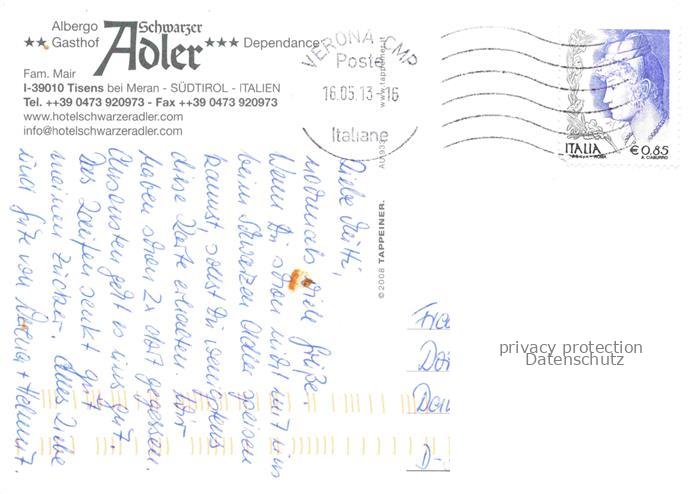 Albergo Schwarzer
★★ Gasthof Adler ★★★ Dependance
Fam. Mair
I-39010 Tisens bei Meran - SÜDTIROL - ITALIEN
Tel. ++39 0473 920973 - Fax ++39 0473 920973
www.hotelschwarzeradler.com
info@hotelschwarzeradler.com
VERONA CMP
Poste
16.05.13-16
Italiane
ITALIA
€0,85
www.tappeiner.it
© 2008 TAPPEINER.
Liebe Mutti,
nochmals viele Grüße.
Wenn Du schon nicht mit uns
beim Schwarzen Adler speisen
kannst, sollst Du wenigstens
diese Karte erhalten. Wir
haben schon 2x dort gegessen.
Ansonsten geht es uns gut.
Das Laufen senkt gut
meinen Zucker. Alles Liebe
und Gute von Verena + Helmut.
D-
privacy protection
Datenschutz